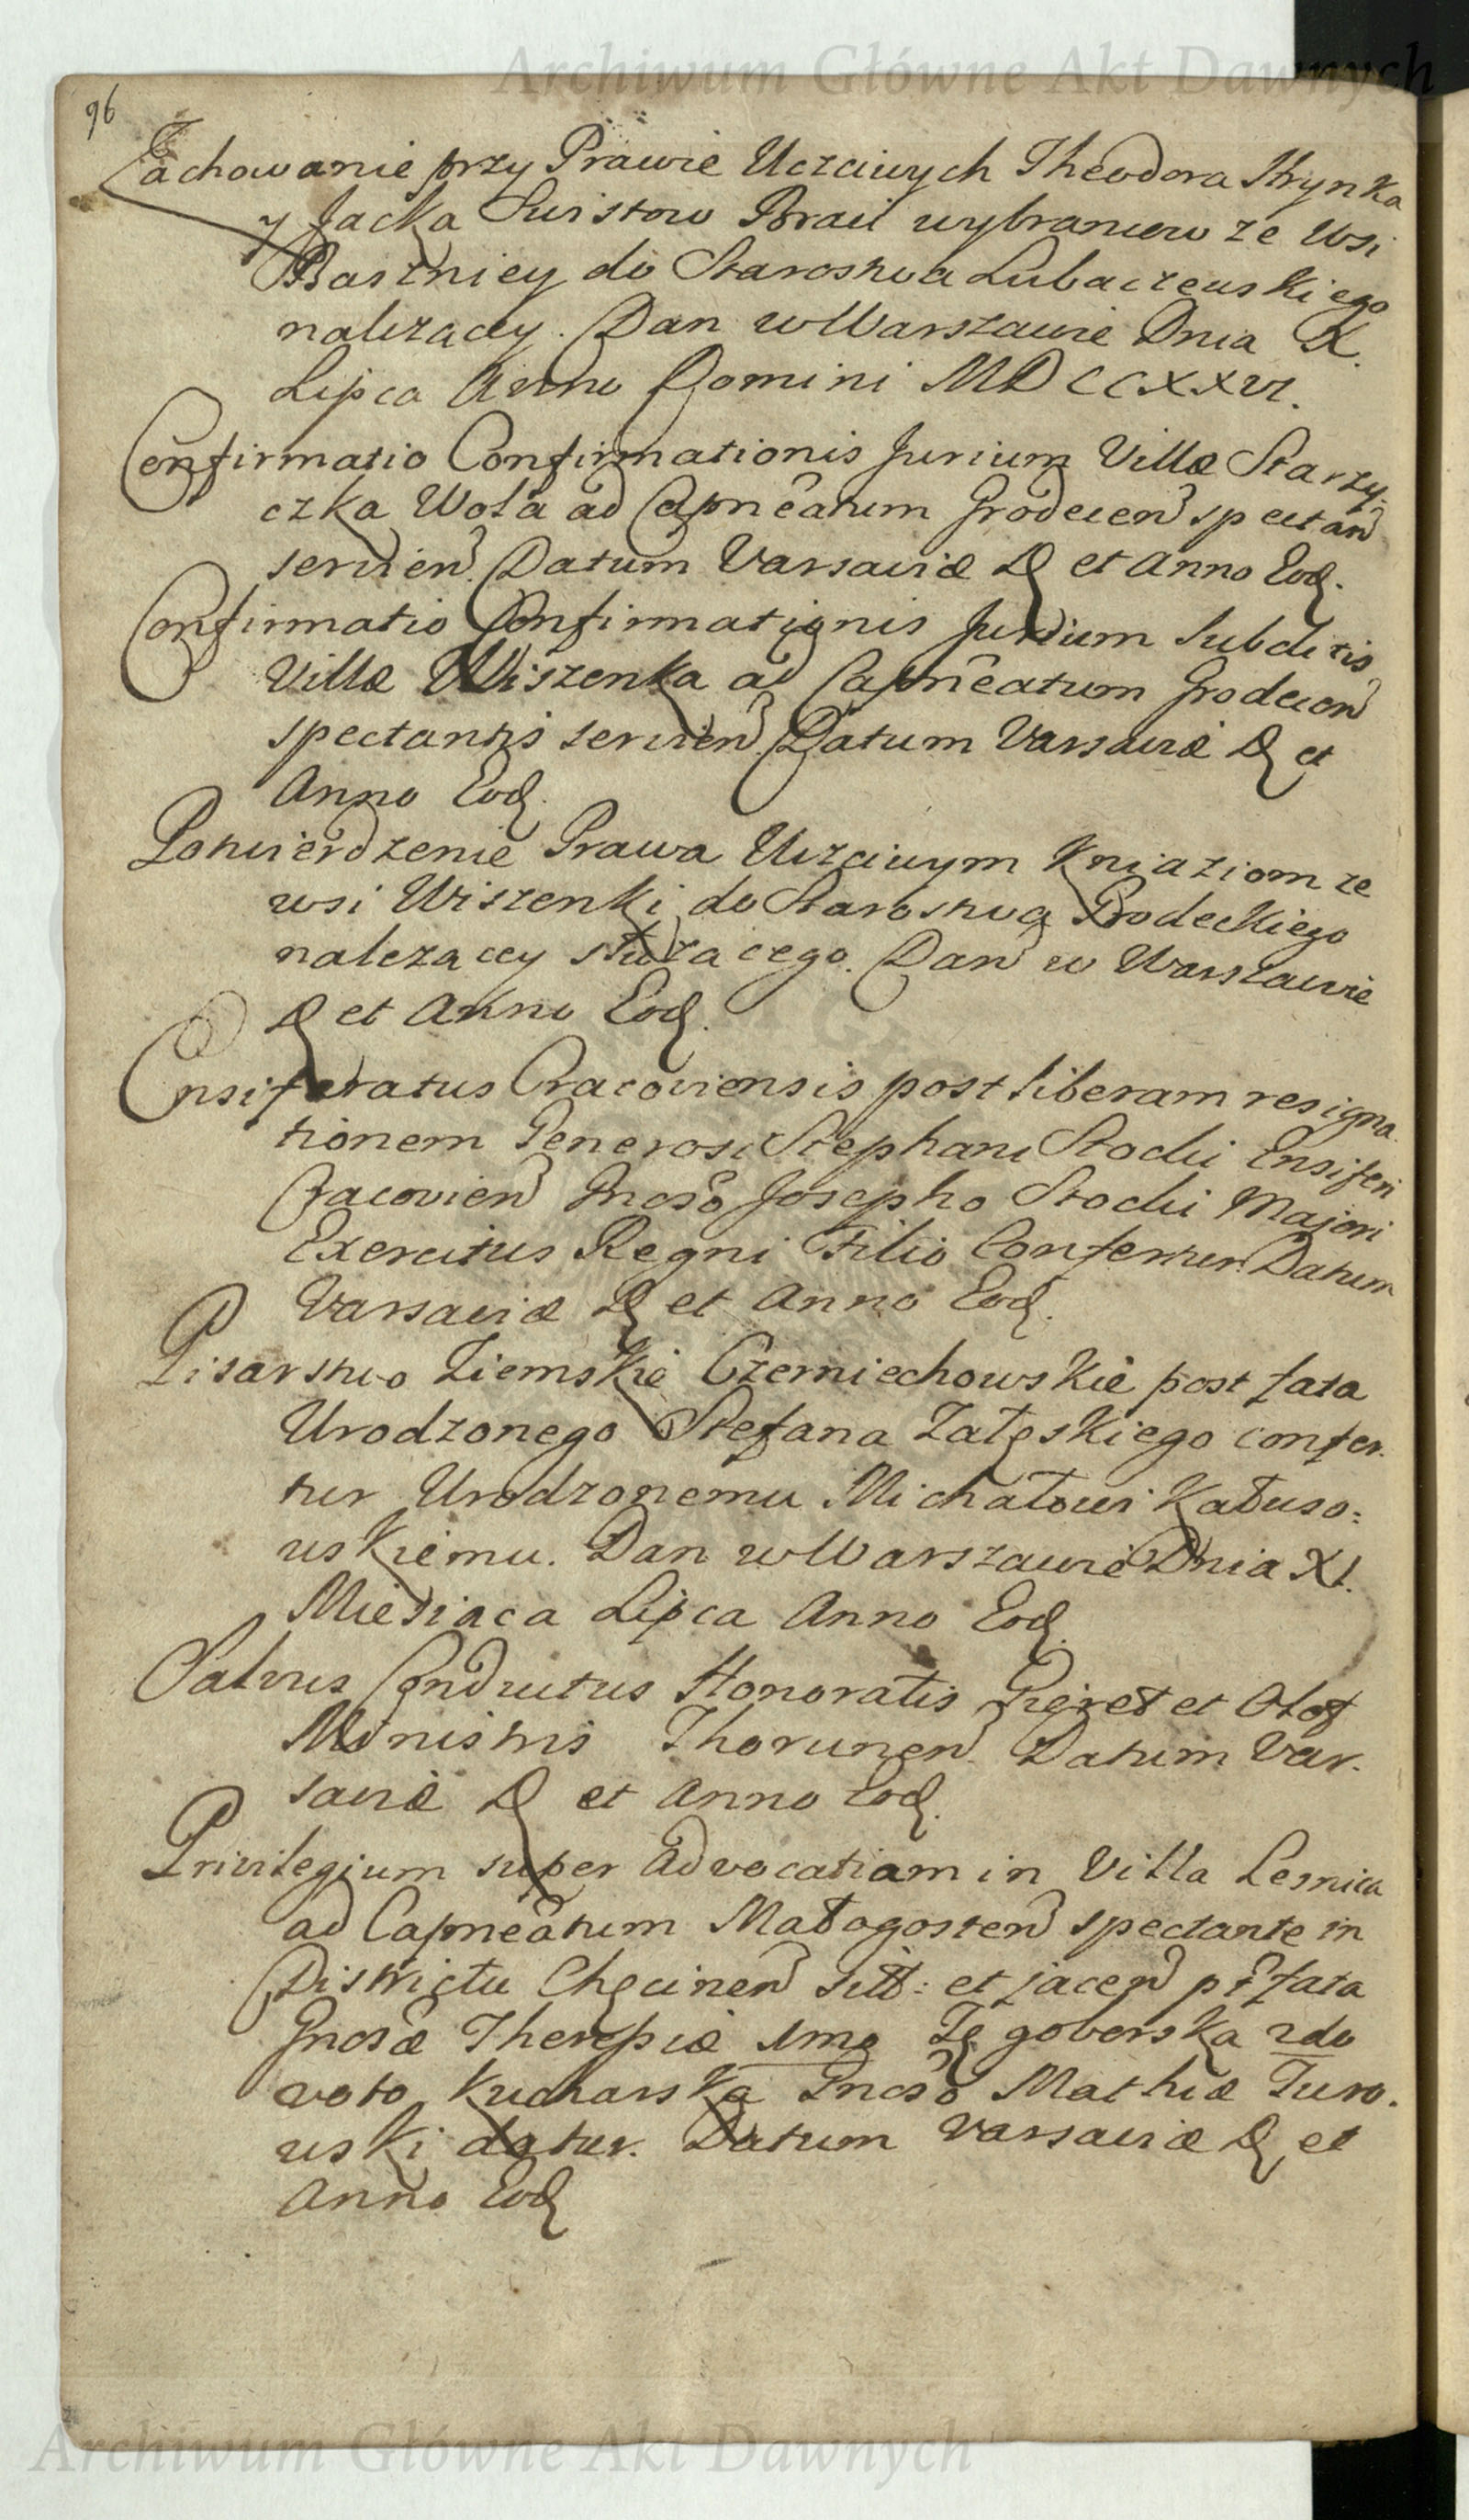 Archiwum Główne Akt Dawnych
96
Zachowanie przy Prawie Uczciwych Theodora Hrynka
y Jacka Swistow Braci wybrancow ze Wsi
Baszniey do Starostwa Lubaczewskiego
należącey. Dan w Warszawie Dnia X.
Lipca Anno Domini MDCCXXVI.
Confirmatio Confirmationis Jurium Villæ Starzy-
czka Wola ad Capneatum Grodecen spectan
servien. Datum Varsaviæ D et Anno Eod.
Confirmatio Confirmationis Jurium Subditis
Villæ Wiszenka ad Capneatum Grodecen
spectantis servien Datum Varsaviæ D et
Anno Eod.
Potwierdzenie Prawa Uczciwym Kniaziom ze
wsi Wiszenki do Starostwa Grodeckiego
należącey służącego. Dan w Warszawie
D et Anno Eod.
Ensiferatus Cracoviensis post liberam resigna-
tionem Generosi Stephani Stocki Ensiferi
Cracovien Gnoso Josepho Stocki Majori
Exercitus Regni Filio Confertur. Datum
Varsaviæ D et Anno Eod.
Pisarstwo Ziemskie Czerniechowskie post fata
Urodzonego Stefana Załęskiego confer-
tur Urodzonemu Michałowi Kałuso:
wskiemu. Dan w Warszawie Dnia XI.
Miesiąca Lipca Anno Eod.
Salvus Conductus Honoratis Gieret et Olof
Ministris Thorunen. Datum Var-
saviæ D et Anno Eod.
Privilegium super Advocatiam in Villa Lesnica
ad Capneatum Małogosten spectante in
Districtu Chęcinen sitt: et jacen pt fata
Gnosæ Theresiæ 1mo Zęgoberska 2do
voto Kucharska Gnoso Mathiæ Turo-
wski datur. Datum Varsaviæ D et
Anno Eod
Archiwum Główne Akt Dawnych